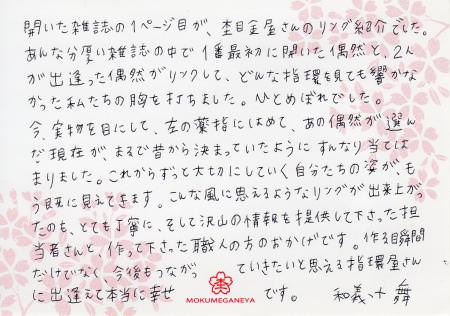 開いた雑誌の1ページ目が、杢目金屋さんのリング紹介でした。
あんな分厚い雑誌の中で1番最初に開いた偶然と、2人
が出逢った偶然がリンクして、どんな指環を見ても響かな
かった私たちの胸を打ちました。ひとめぼれでした。
今、実物を目にして、左の薬指にはめて、あの偶然が選ん
だ現在が、まるで昔から決まっていたようにすんなり当ては
まりました。これからずっと大切にしていく自分たちの姿が、も
う既に見えてきます。こんな風に思えるようなリングが出来上がっ
たのも、とても丁寧に、そして沢山の情報を提供して下さった担
当者さんと、作って下さった職人の方のおかげです。作る瞬間
だけでなく、今後もつながっていきたいと思える指環屋さん
に出逢えて本当に幸せです。 和義+舞
杢
MOKUMEGANEYA